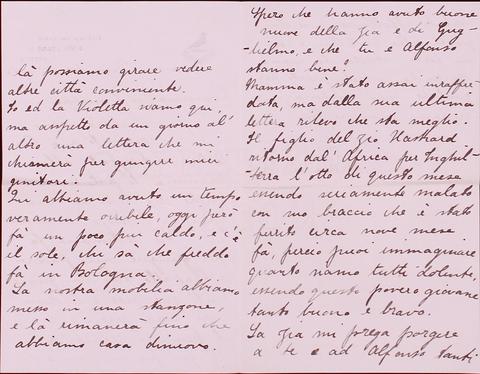 là possiamo girare vedere
altre città conveniente.
Io ed la Violetta siamo qui,
ma aspetto da un giorno al'
altro una lettera che mi
chiamerà per giungere miei
genitori.
Qui abbiamo avuto un tempo
veramente orribile, oggi però
fà un poco più caldo, e c'è
il sole, che sà che freddo
fà in Bologna.
La nostra mobilia abbiamo
messo in una stanzone,
e là rimanerà fino che
abbiamo casa dinuovo.
Spero che hanno avuto buone
nuove della zia e di Gug-
-lielmo, e che tu e Alfonso
stanno bene?
Mamma è stato assai inraffre-
data, ma dalla sua ultima
lettera rilevo che sta meglio.
Il figlio del zio
ritorno dal' Africa per Inghil-
-terra l'otto di questo mese
essendo seriamente malato
con suo braccio che è stato
ferito circa nove mese
fà, perciò puoi immaginare
quanto siamo tutti dolente,
essendo questo povero giovane
tanto buono e bravo.
La zia mi prega porgere
a te e ad Alfonso tanti